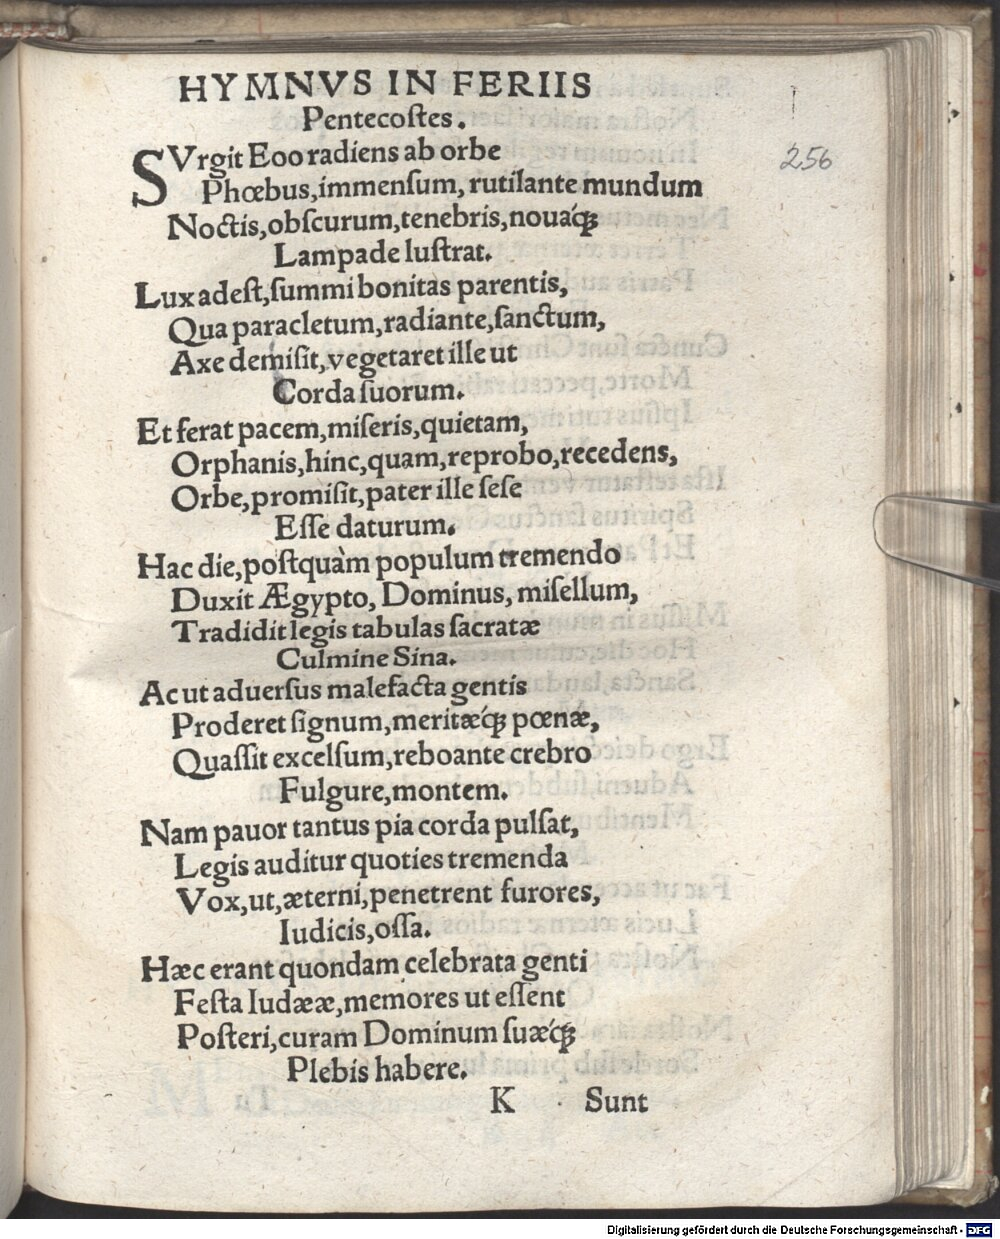 HYMNVS IN FERIIS
Pentecoſtes.
256
SVrgit Eoo radiens ab orbe
Phœbus, immenſum, rutilante mundum
Noctis, obſcurum, tenebris, nouáq;
Lampade luſtrat.
Lux adeſt, ſummi bonitas parentis,
Qua paracletum, radiante, ſanctum,
Axe demiſit, vegetaret ille ut
Corda ſuorum.
Et ferat pacem, miſeris, quietam,
Orphanis, hinc, quam, reprobo, recedens,
Orbe, promiſit, pater ille ſeſe
Eſſe daturum.
Hac die, poſtquàm populum tremendo
Duxit Ægypto, Dominus, miſellum,
Tradidit legis tabulas ſacratæ
Culmine Sina.
Ac ut aduerſus malefacta gentis
Proderet ſignum, meritæq́; pœnæ,
Quaſſit excelſum, reboante crebro
Fulgure, montem.
Nam pauor tantus pia corda pulſat,
Legis auditur quoties tremenda
Vox, ut, æterni, penetrent furores,
Iudicis, oſſa.
Hæc erant quondam celebrata genti
Feſta Iudææ, memores ut eſſent
Poſteri, curam Dominum ſuæq́;
Plebis habere.
K Sunt
Digitalisierung gefördert durch die Deutsche Forschungsgemeinschaft - DFG